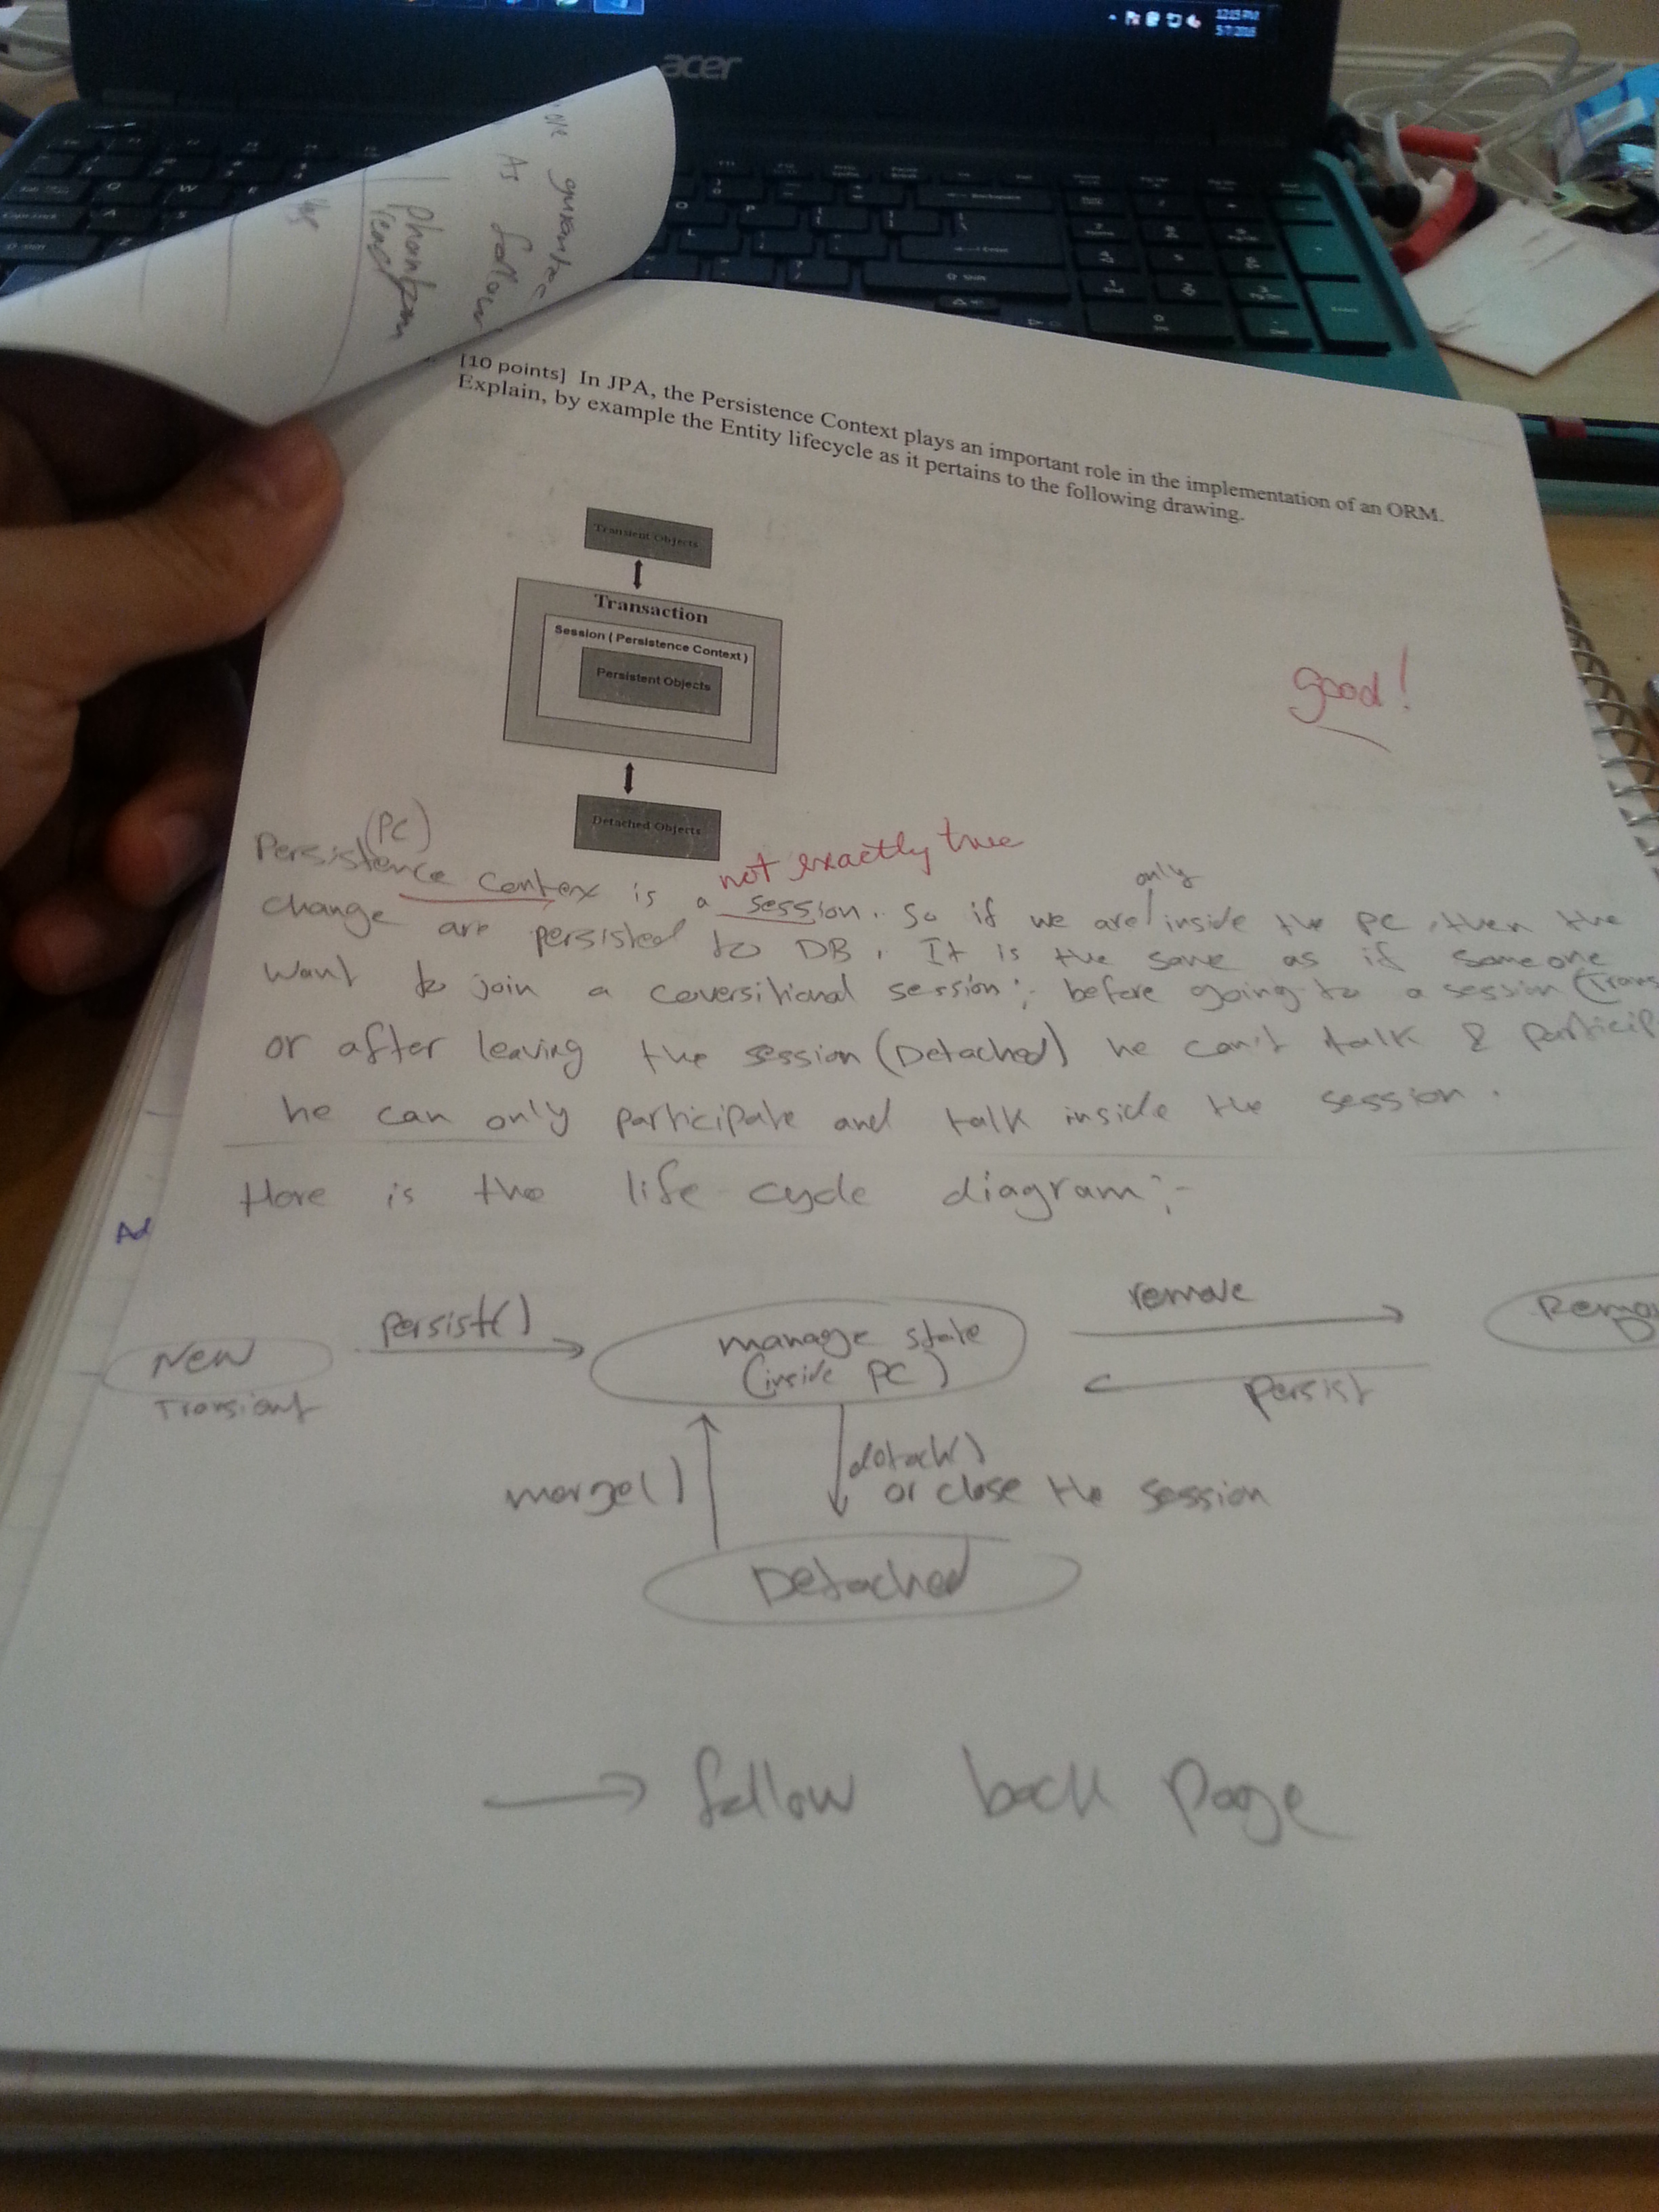 12:15 PM
5/7/2016
acer
As follow
phantom
read
[10 points] In JPA, the Persistence Context plays an important role in the implementation of an ORM.
Explain, by example the Entity lifecycle as it pertains to the following drawing.
Transient Objects
Transaction
Session ( Persistence Context )
Persistent Objects
Detached Objects
good!
(PC)
not exactly true
only
Persistence Contex is a session. So if we are inside the PC, then the
change are persisted to DB. It is the same as if someone
want to join a coversitional session; before going to a session (Trans
or after leaving the session (Detached) he can't talk & particip
he can only participate and talk inside the session.
Here is the life cycle diagram:-
Ad
persist()
remove
New
Transient
manage state
(inside PC)
Remo
persist
merge()
detach()
or close the session
Detached
→ follow back page